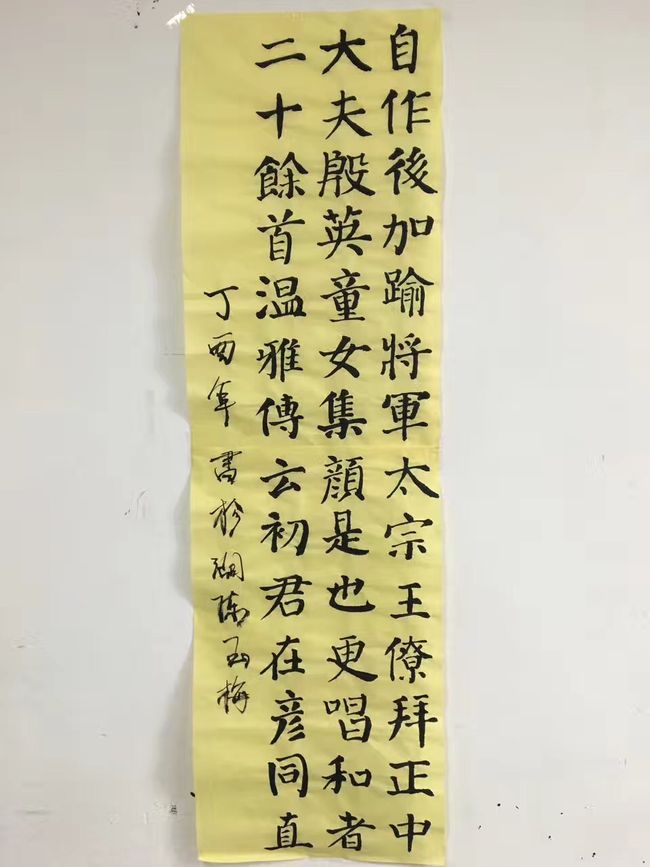 自作後加踰將軍太宗王僚拜正中
大夫殷英童女集顔是也更唱和者
二十餘首温雅傳云初君在彦同直
丁酉年書於湖陳玉梅